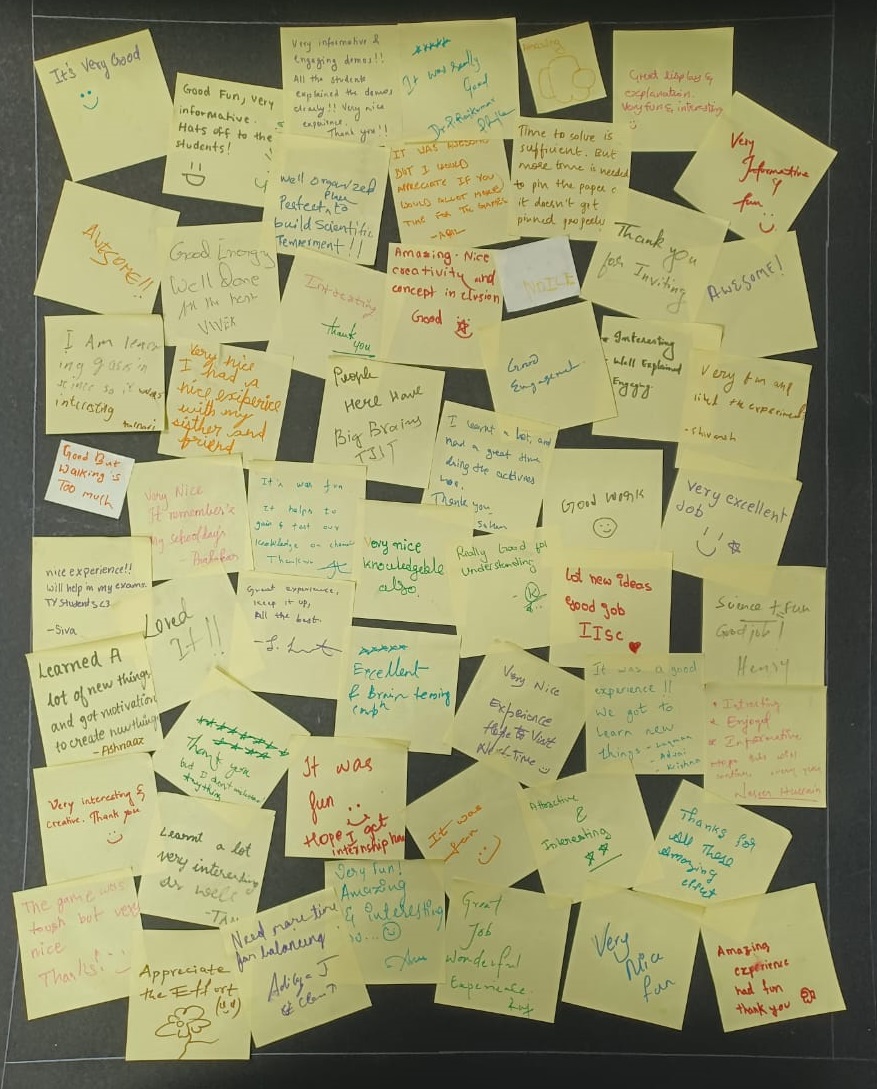 It's Very Good
Good Fun, very
informative.
Hats off to the
students!
Very informative &
Engaging demos!!
All the students
explained the demos
clearly!! Very nice
experience.
Thank you!!
It was really
Good
Amazing
Good displays &
explanation.
Very fun & interesting
Very
Informative
&
fun
AWESOME!!
Good Energy
Well Done
for the next
VIVEK
Well organized
Perfect Plan to
build Scientific
Temperment !!
IT WAS AWESOME
BUT I WOULD
APPRECIATE IF YOU
WOULD ALLOT MORE
TIME FOR THE GAMES
Time to solve is
sufficient. But
more time is needed
to pin the paper
it doesn't get
pinned properly
Thank you
for Inviting
AWESOME!
Interesting
thank
you
Amazing. Nice
creativity and
concept inclusion
Good
NOICE
I Am learn
ing
so it was
interesting
Very nice
I had a
nice exiperice
with my
sisther and
friend
People
Here Have
Big Brains
Good
Engagement.
Interesting
Well Explained
Engaging
Very fun and
liked the experiment
I learnt a lot, and
had a great time
doing the activities
too.
Thank you
Good But
Walking is
Too much
Very Nice
It remembers
my school days
It's was fun
It helps to
gain & test our
knowledge on
Thank
Very nice
knowledgeble
also.
Really Good for
Understanding
Good work
Very excellent
Job
nice experience!!
Will help in my exams.
TY Students <3
-Siva
Loved
It!!
Great experience,
keep it up,
All the best.
Excellent
& Brain teasing
Lot new ideas
good job
IISc
Science + Fun
Good job!
Henry
Learned A
lot of new things
and got motivation
to create new things
- Ashnaaz
Thank you
but I didn't
anything
Very Nice
Experience
Hope to Visit
Next Time
It was a good
experience !!
We got to
learn new
things - Laxman
- Advai
- Krishna
Intresting
Engaged
Informative
Very interesting &
creative. Thank you
Learnt a lot
very interesting
as well
It was
fun
Hope I get
internship here
It was
fun
Attractive
&
Interesting
Thanks for
all These
Amazing
effort
The game was
tough but very
nice
Thanks!
Appreciate
the Effort
Need more time
for balancing
Aditya J
Very fun!
Amazing
& interesting
so...
Great
Job
Wonderful
Experience.
Very
Nice
fun
Amazing
experience
had fun
thank you